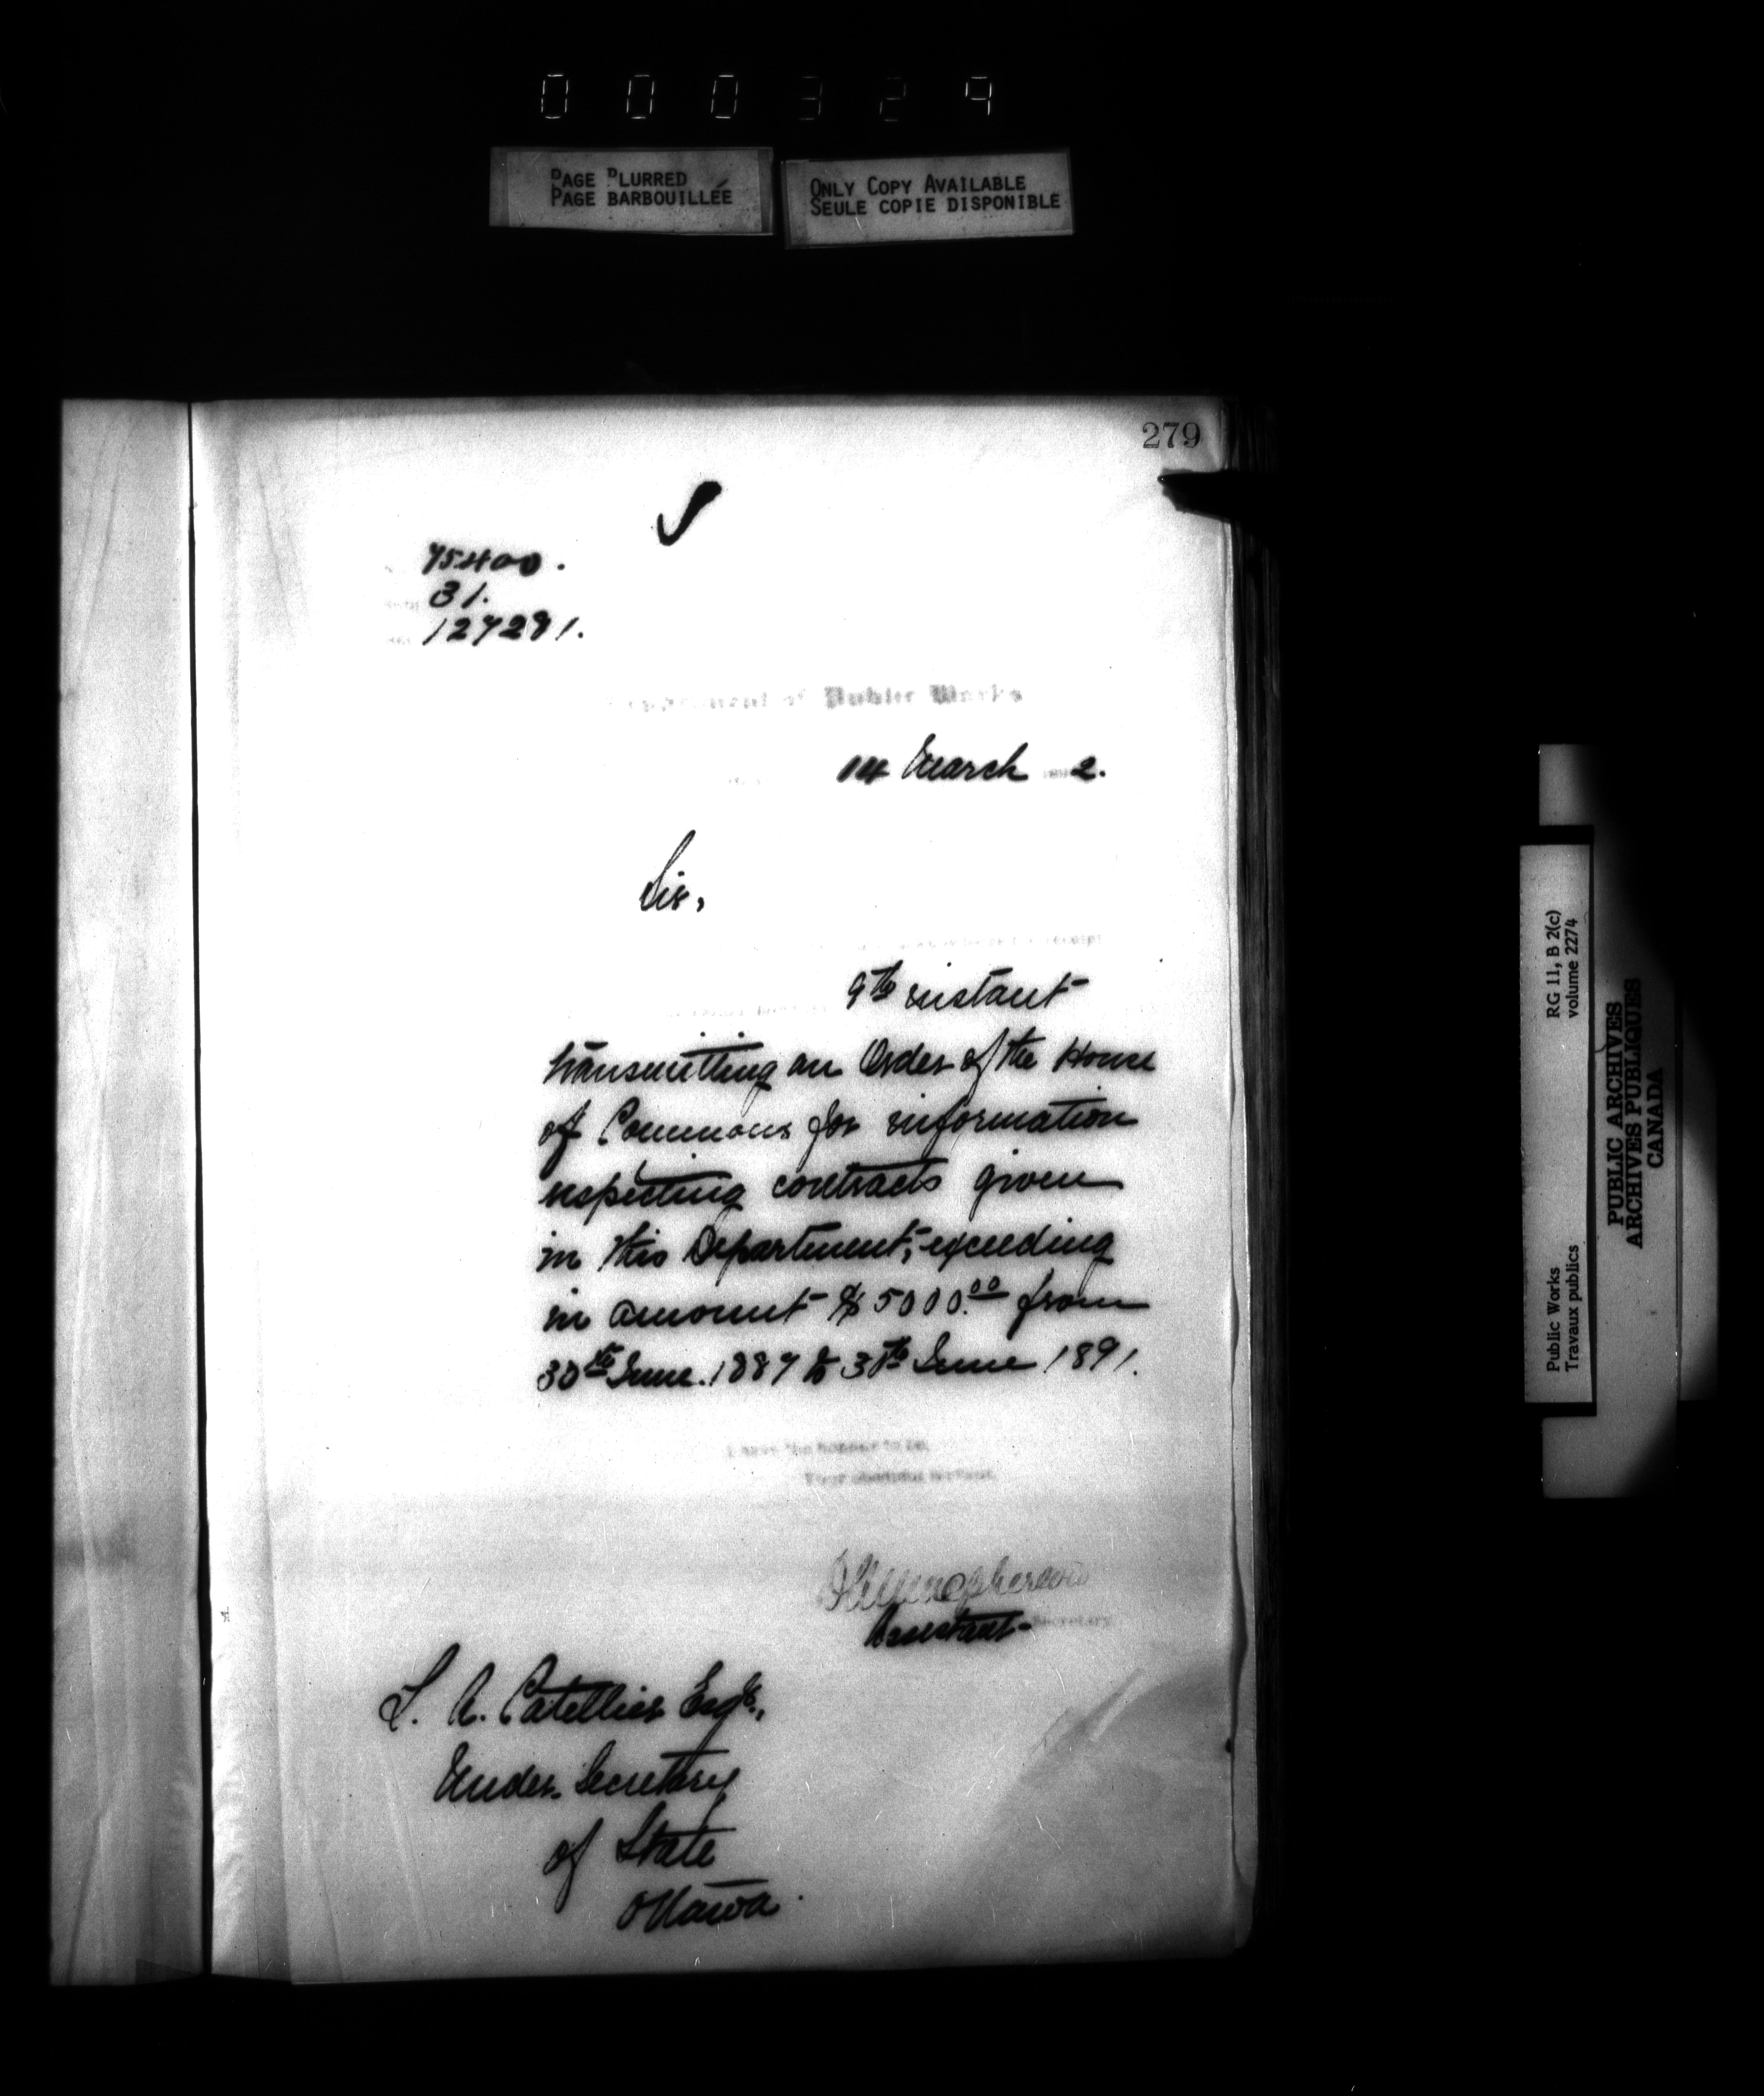 000329
PAGE BLURRED
PAGE BARBOUILLÉE
ONLY COPY AVAILABLE
SEULE COPIE DISPONIBLE
279
75400.
31.
127281.
Department of Public Works
14 March 2.
Sir,
receipt
9th instant
transmitting an Order of the House
of Commons for information
respecting contracts given
in this Department, exceeding
in amount $5000.00 from
30th June. 1887 to 30th June 1891.
I have the honour to be,
Your obedient servant,
Assistant Secretary
L. A. Catellier Esqr.,
Under Secretary
of State
Ottawa.
RG 11, B 2(c)
volume 2274
Public Works
Travaux publics
PUBLIC ARCHIVES
ARCHIVES PUBLIQUES
CANADA